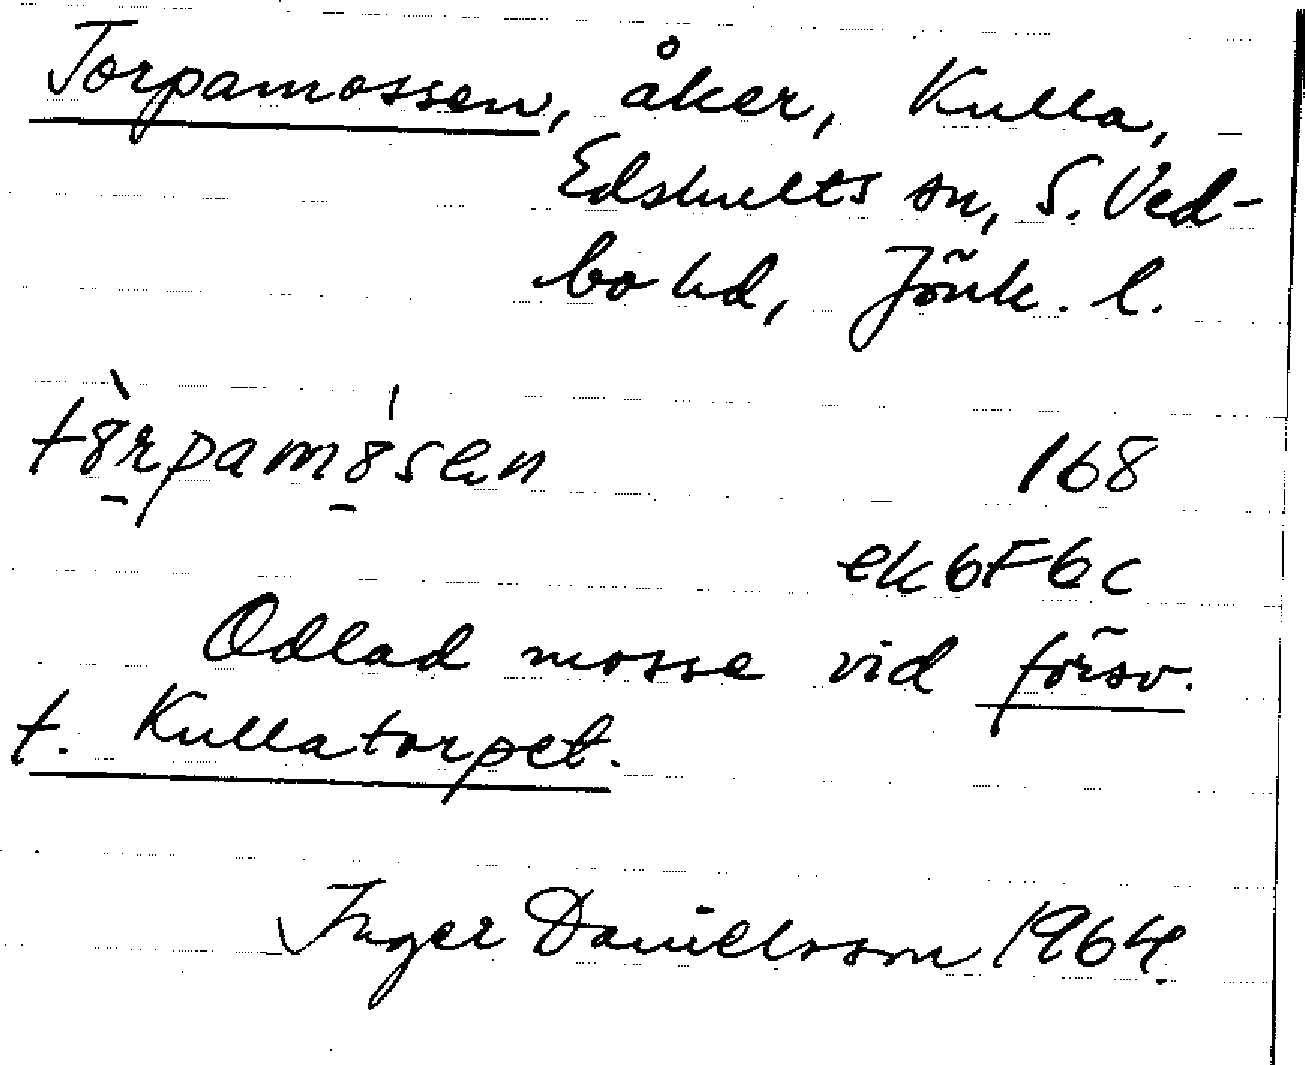 Torpamossen, åker, Kulla,
Edshults sn, S. Ved-
bo hd, Jönk. l.
tȯ̀rpamȯ́sen 168
ek6F6c
Odlad mosse vid försv.
t. Kullatorpet.
Inger Danielsson 1964.